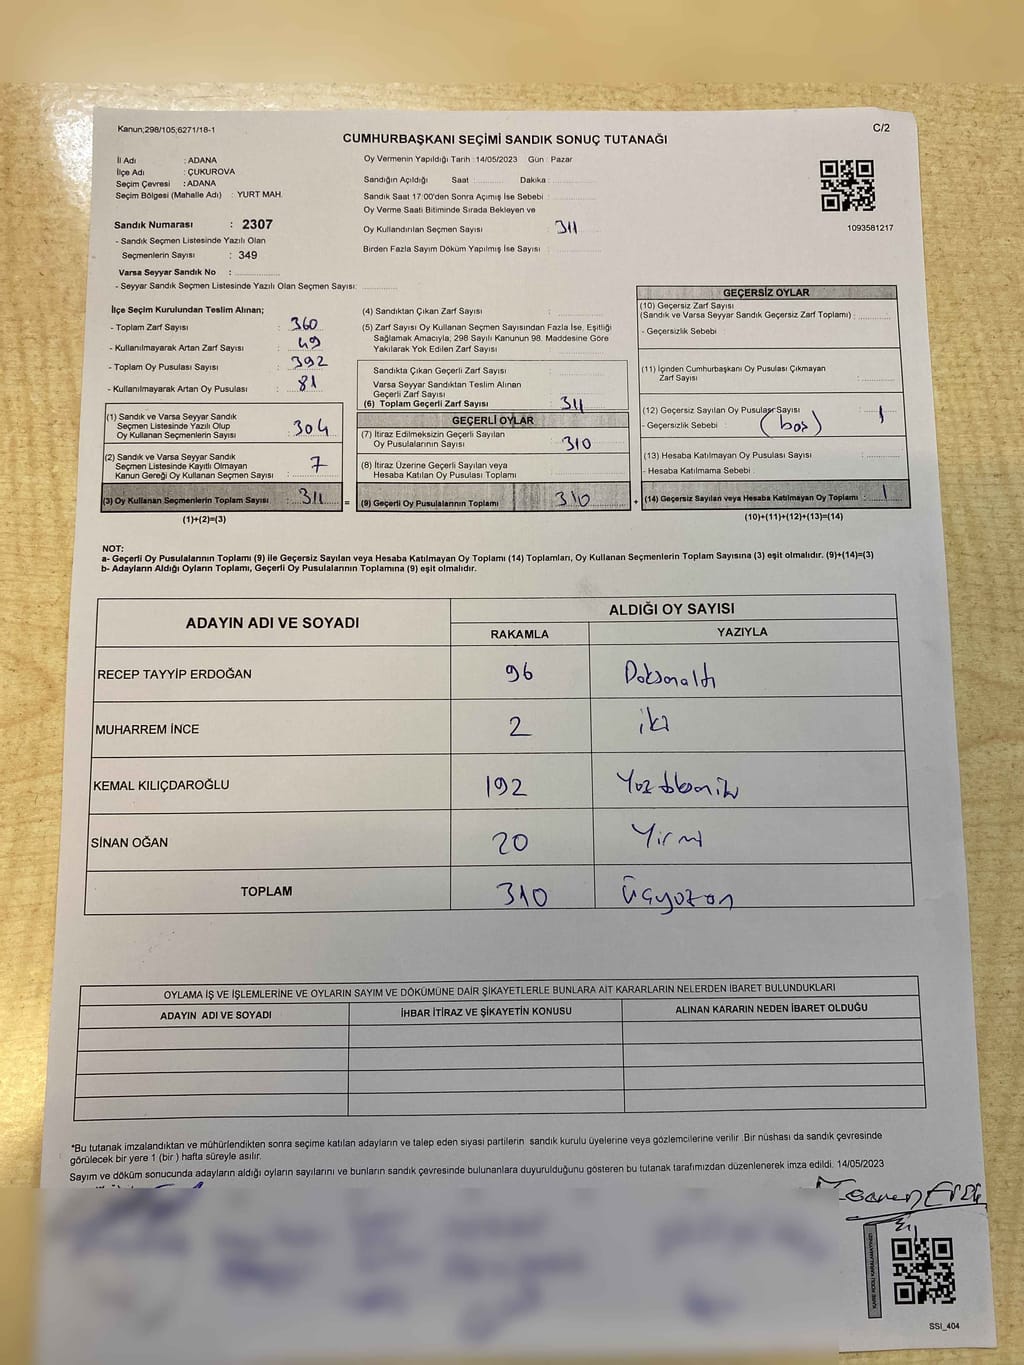 Kanun;298/105;6271/18-1
C/2
CUMHURBAŞKANI SEÇİMİ SANDIK SONUÇ TUTANAĞI
İl Adı : ADANA
İlçe Adı : ÇUKUROVA
Seçim Çevresi : ADANA
Seçim Bölgesi (Mahalle Adı) : YURT MAH.
Sandık Numarası : 2307
- Sandık Seçmen Listesinde Yazılı Olan
Seçmenlerin Sayısı : 349
Varsa Seyyar Sandık No :
- Seyyar Sandık Seçmen Listesinde Yazılı Olan Seçmen Sayısı:
Oy Vermenin Yapıldığı Tarih :14/05/2023 Gün : Pazar
Sandığın Açıldığı Saat : Dakika :
Sandık Saat 17:00'den Sonra Açımış İse Sebebi :
Oy Verme Saati Bitiminde Sırada Bekleyen ve
Oy Kullandırılan Seçmen Sayısı : 311
Birden Fazla Sayım Döküm Yapılmış İse Sayısı :
1093581217
İlçe Seçim Kurulundan Teslim Alınan;
- Toplam Zarf Sayısı : 360
- Kullanılmayarak Artan Zarf Sayısı : 49
- Toplam Oy Pusulası Sayısı : 392
- Kullanılmayarak Artan Oy Pusulası : 81
(1) Sandık ve Varsa Seyyar Sandık
Seçmen Listesinde Yazılı Olup
Oy Kullanan Seçmenlerin Sayısı : 304
(2) Sandık ve Varsa Seyyar Sandık
Seçmen Listesinde Kayıtlı Olmayan
Kanun Gereği Oy Kullanan Seçmen Sayısı : 7
(3) Oy Kullanan Seçmenlerin Toplam Sayısı : 311 =
(1)+(2)=(3)
(4) Sandıktan Çıkan Zarf Sayısı :
(5) Zarf Sayısı Oy Kullanan Seçmen Sayısından Fazla İse, Eşitliği
Sağlamak Amacıyla; 298 Sayılı Kanunun 98. Maddesine Göre
Yakılarak Yok Edilen Zarf Sayısı :
Sandıkta Çıkan Geçerli Zarf Sayısı :
Varsa Seyyar Sandıktan Teslim Alınan
Geçerli Zarf Sayısı :
(6) Toplam Geçerli Zarf Sayısı : 311
GEÇERLİ OYLAR
(7) İtiraz Edilmeksizin Geçerli Sayılan
Oy Pusulalarının Sayısı : 310
(8) İtiraz Üzerine Geçerli Sayılan veya
Hesaba Katılan Oy Pusulası Toplamı :
(9) Geçerli Oy Pusulalarının Toplamı : 310 +
GEÇERSİZ OYLAR
(10) Geçersiz Zarf Sayısı
(Sandık ve Varsa Seyyar Sandık Geçersiz Zarf Toplamı) :
- Geçersizlik Sebebi :
(11) İçinden Cumhurbaşkanı Oy Pusulası Çıkmayan
Zarf Sayısı :
(12) Geçersiz Sayılan Oy Pusulası Sayısı : 1
- Geçersizlik Sebebi : (boş)
(13) Hesaba Katılmayan Oy Pusulası Sayısı :
- Hesaba Katılmama Sebebi :
(14) Geçersiz Sayılan veya Hesaba Katılmayan Oy Toplamı : 1
(10)+(11)+(12)+(13)=(14)
NOT:
a- Geçerli Oy Pusulalarının Toplamı (9) ile Geçersiz Sayılan veya Hesaba Katılmayan Oy Toplamı (14) Toplamları, Oy Kullanan Seçmenlerin Toplam Sayısına (3) eşit olmalıdır. (9)+(14)=(3)
b- Adayların Aldığı Oyların Toplamı, Geçerli Oy Pusulalarının Toplamına (9) eşit olmalıdır.
ADAYIN ADI VE SOYADI ALDIĞI OY SAYISI
RAKAMLA YAZIYLA
RECEP TAYYİP ERDOĞAN 96 Doksanaltı
MUHARREM İNCE 2 iki
KEMAL KILIÇDAROĞLU 192
SİNAN OĞAN 20 Yirmi
TOPLAM 310 Üçyüzon
OYLAMA İŞ VE İŞLEMLERİNE VE OYLARIN SAYIM VE DÖKÜMÜNE DAİR ŞİKAYETLERLE BUNLARA AİT KARARLARIN NELERDEN İBARET BULUNDUKLARI
ADAYIN ADI VE SOYADI İHBAR İTİRAZ VE ŞİKAYETİN KONUSU ALINAN KARARIN NEDEN İBARET OLDUĞU
*Bu tutanak imzalandıktan ve mühürlendikten sonra seçime katılan adayların ve talep eden siyasi partilerin sandık kurulu üyelerine veya gözlemcilerine verilir .Bir nüshası da sandık çevresinde
görülecek bir yere 1 (bir ) hafta süreyle asılır.
Sayım ve döküm sonucunda adayların aldığı oyların sayılarını ve bunların sandık çevresinde bulunanlara duyurulduğunu gösteren bu tutanak tarafımızdan düzenlenerek imza edildi. 14/05/2023
KARE KODU KARALAMAYINIZ!
SSI_404